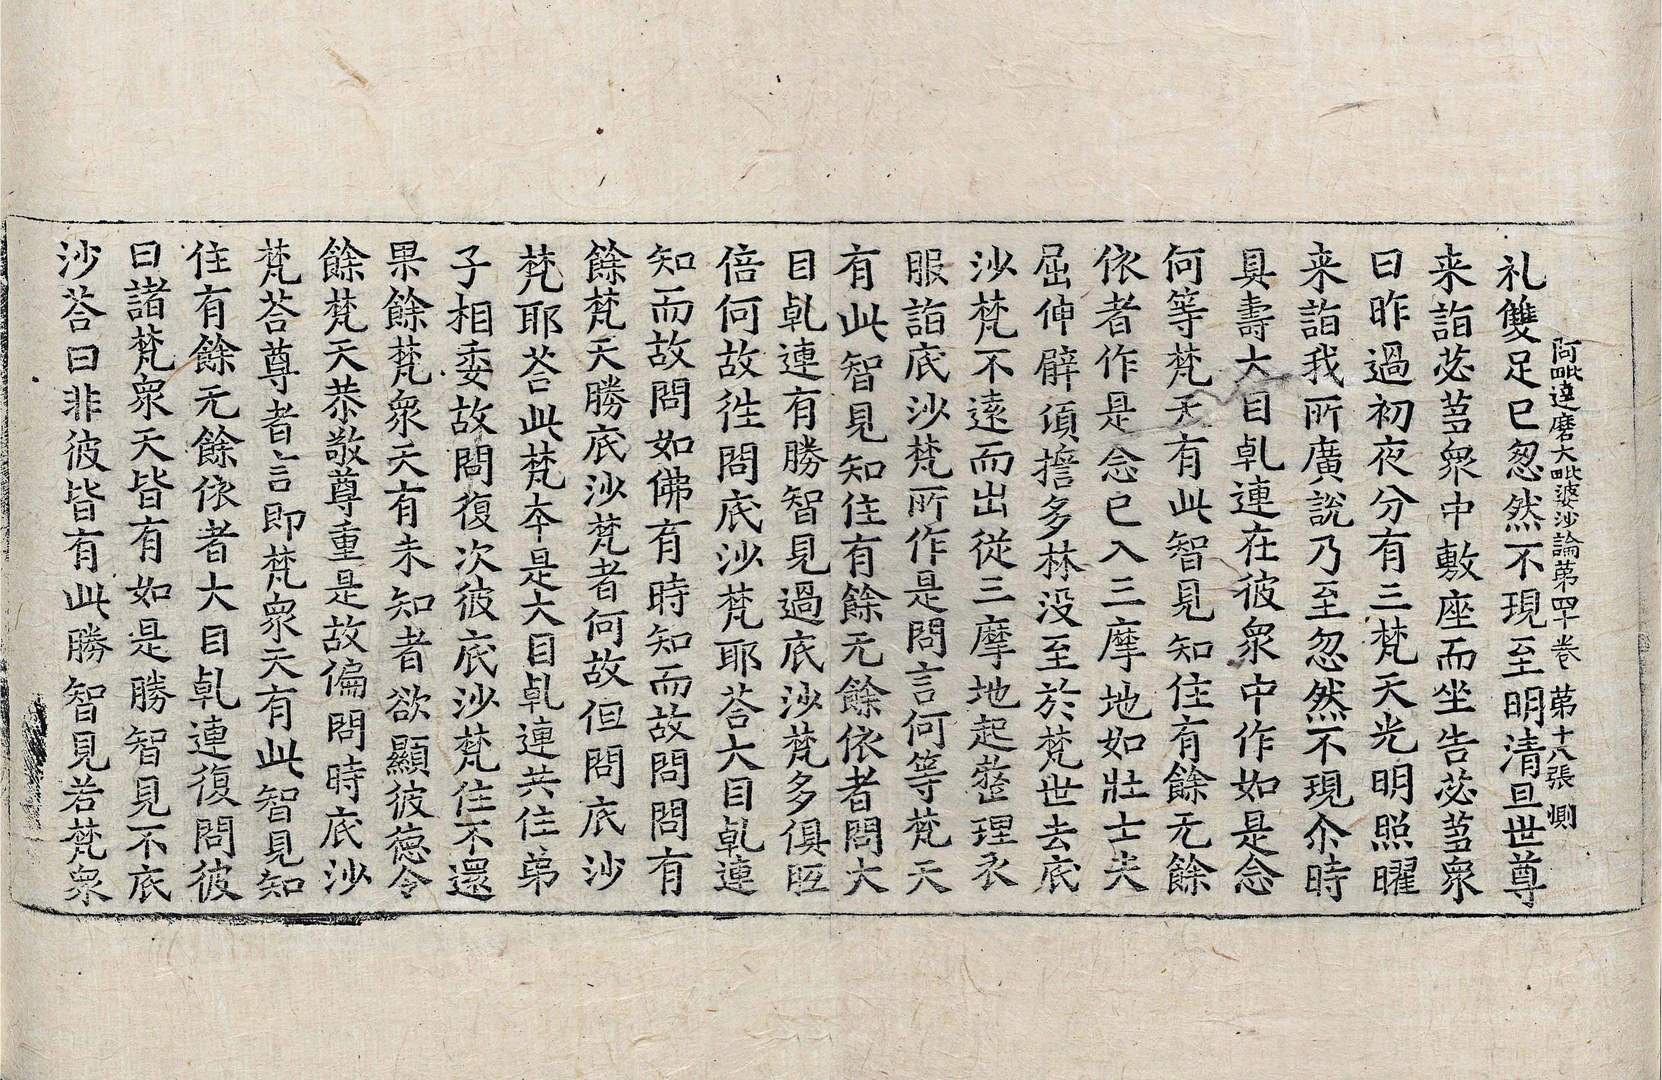 阿毗達磨大毗婆沙論苐四十卷 苐十八張 惻
礼雙足已忽然不現至明清旦世尊
来詣苾芻衆中敷座而坐告苾芻衆
曰昨過初夜分有三梵天光明照曜
来詣我所廣說乃至忽然不現尒時
具壽大目乹連在彼衆中作如是念
何等梵天有此智見知住有餘无餘
依者作是念已入三摩地如壯士夫
屈伸臂頃擔多林没至於梵世去底
沙梵不遠而出從三摩地起整理衣
服詣底沙梵所作是問言何等梵天
有此智見知住有餘无餘依者問大
目乹連有勝智見過底沙梵多俱胝
倍何故徃問底沙梵耶荅大目乹連
知而故問如佛有時知而故問問有
餘梵天勝底沙梵者何故但問底沙
梵耶荅此梵夲是大目乹連共住弟
子相委故問復次彼底沙梵住不還
果餘梵衆天有未知者欲顯彼德令
餘梵天恭敬尊重是故偏問時底沙
梵荅尊者言即梵衆天有此智見知
住有餘无餘依者大目乹連復問彼
曰諸梵衆天皆有如是勝智見不底
沙荅曰非彼皆有此勝智見若梵衆